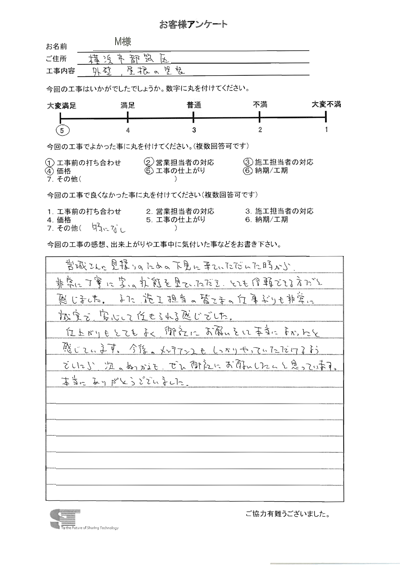 お客様アンケート
お名前 M様
ご住所 横浜市都筑区
工事内容 外壁、屋根の塗装
今回の工事はいかがでしたでしょうか。数字に丸を付けてください。
大変満足 満足 普通 不満 大変不満
5 4 3 2 1
今回の工事でよかった事に丸を付けてください。（複数回答可です）
①工事前の打ち合わせ ②営業担当者の対応 ③施工担当者の対応
④価格 ⑤工事の仕上がり ⑥納期/工期
7. その他( )
今回の工事で良くなかった事に丸を付けてください（複数回答可です）
1. 工事前の打ち合わせ 2. 営業担当者の対応 3. 施工担当者の対応
4. 価格 5. 工事の仕上がり 6. 納期/工期
7. その他( 特になし )
今回の工事の感想、出来上がりや工事中に気付いた事などをお書き下さい。
宮城さんに見積りのための下見に来ていただいた時から、
非常に丁寧に家の状態を見ていただき、とても信頼できる方だと
感じました。また施工担当の皆さまの仕事ぶりも非常に
誠実で、安心して任せられる感じでした。
仕上がりもとてもよく、御社にお願いをして本当によかったと
感じています。今後のメンテナンスもしっかりやっていただけるよう
でしたら、次の 、ぜひ御社にお願いしたいと思っています。
本当にありがとうございました。
ご協力有難うございました。
for the Future of Sharing Technology